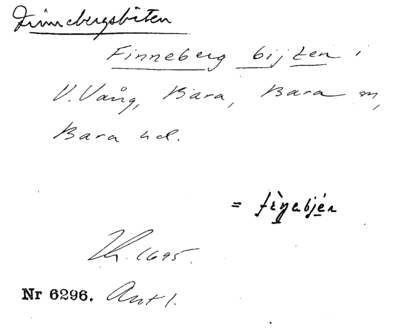 Finnebergsbiten
Finneberg bijten i
V. Vång, Bara, Bara sn,
Bara hd.
=
Lh. 1695.
Nr 6296. Ant 1.